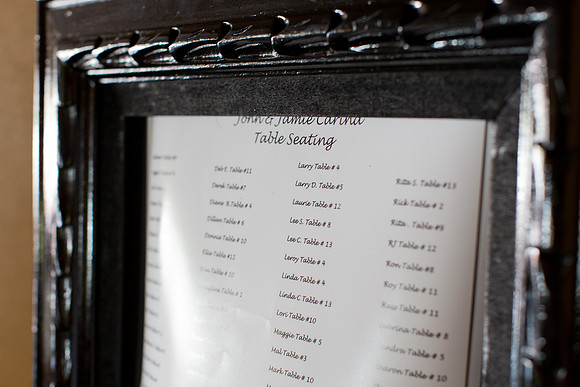 John & Jamie Carina
Table Seating
Deb E. Table #11
Derek Table #7
Diane B. Table # 4
Dillian Table # 6
Donnie Table # 10
Ellie Table #12
Table # 10
Table # 2
Larry Table # 4
Larry D. Table #5
Laurie Table # 12
Lee S. Table # 8
Lee C. Table # 13
Leroy Table # 4
Linda Table # 4
Linda C Table # 13
Lori Table #10
Maggie Table # 5
Mal Table #3
Mark Table # 10
Table # 10
Rita S. Table #13
Rick Table # 2
Rita . Table #9
RJ Table # 12
Ron Table #8
Roy Table # 11
Russ Table # 11
Table # 8
Table # 5
Sharon Table # 10